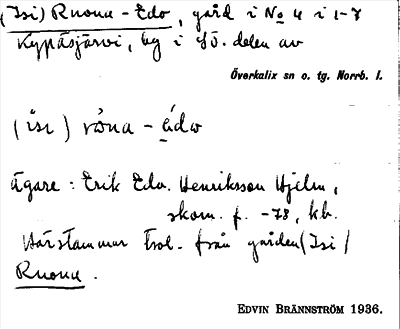 (Isi) Ruona-Edo, gård i No 4 i 1-7
Kypåsjärvi, by i sö. delen av
Överkalix sn o. tg. Norrb. l.
(ísı) rò̀na - édω
Ägare: Erik Edv. Henriksson Hjelm,
skom. f. -78, kb.
Härstammar trol. från gården (Isi)
Ruona.
EDVIN BRÄNNSTRÖM 1936.